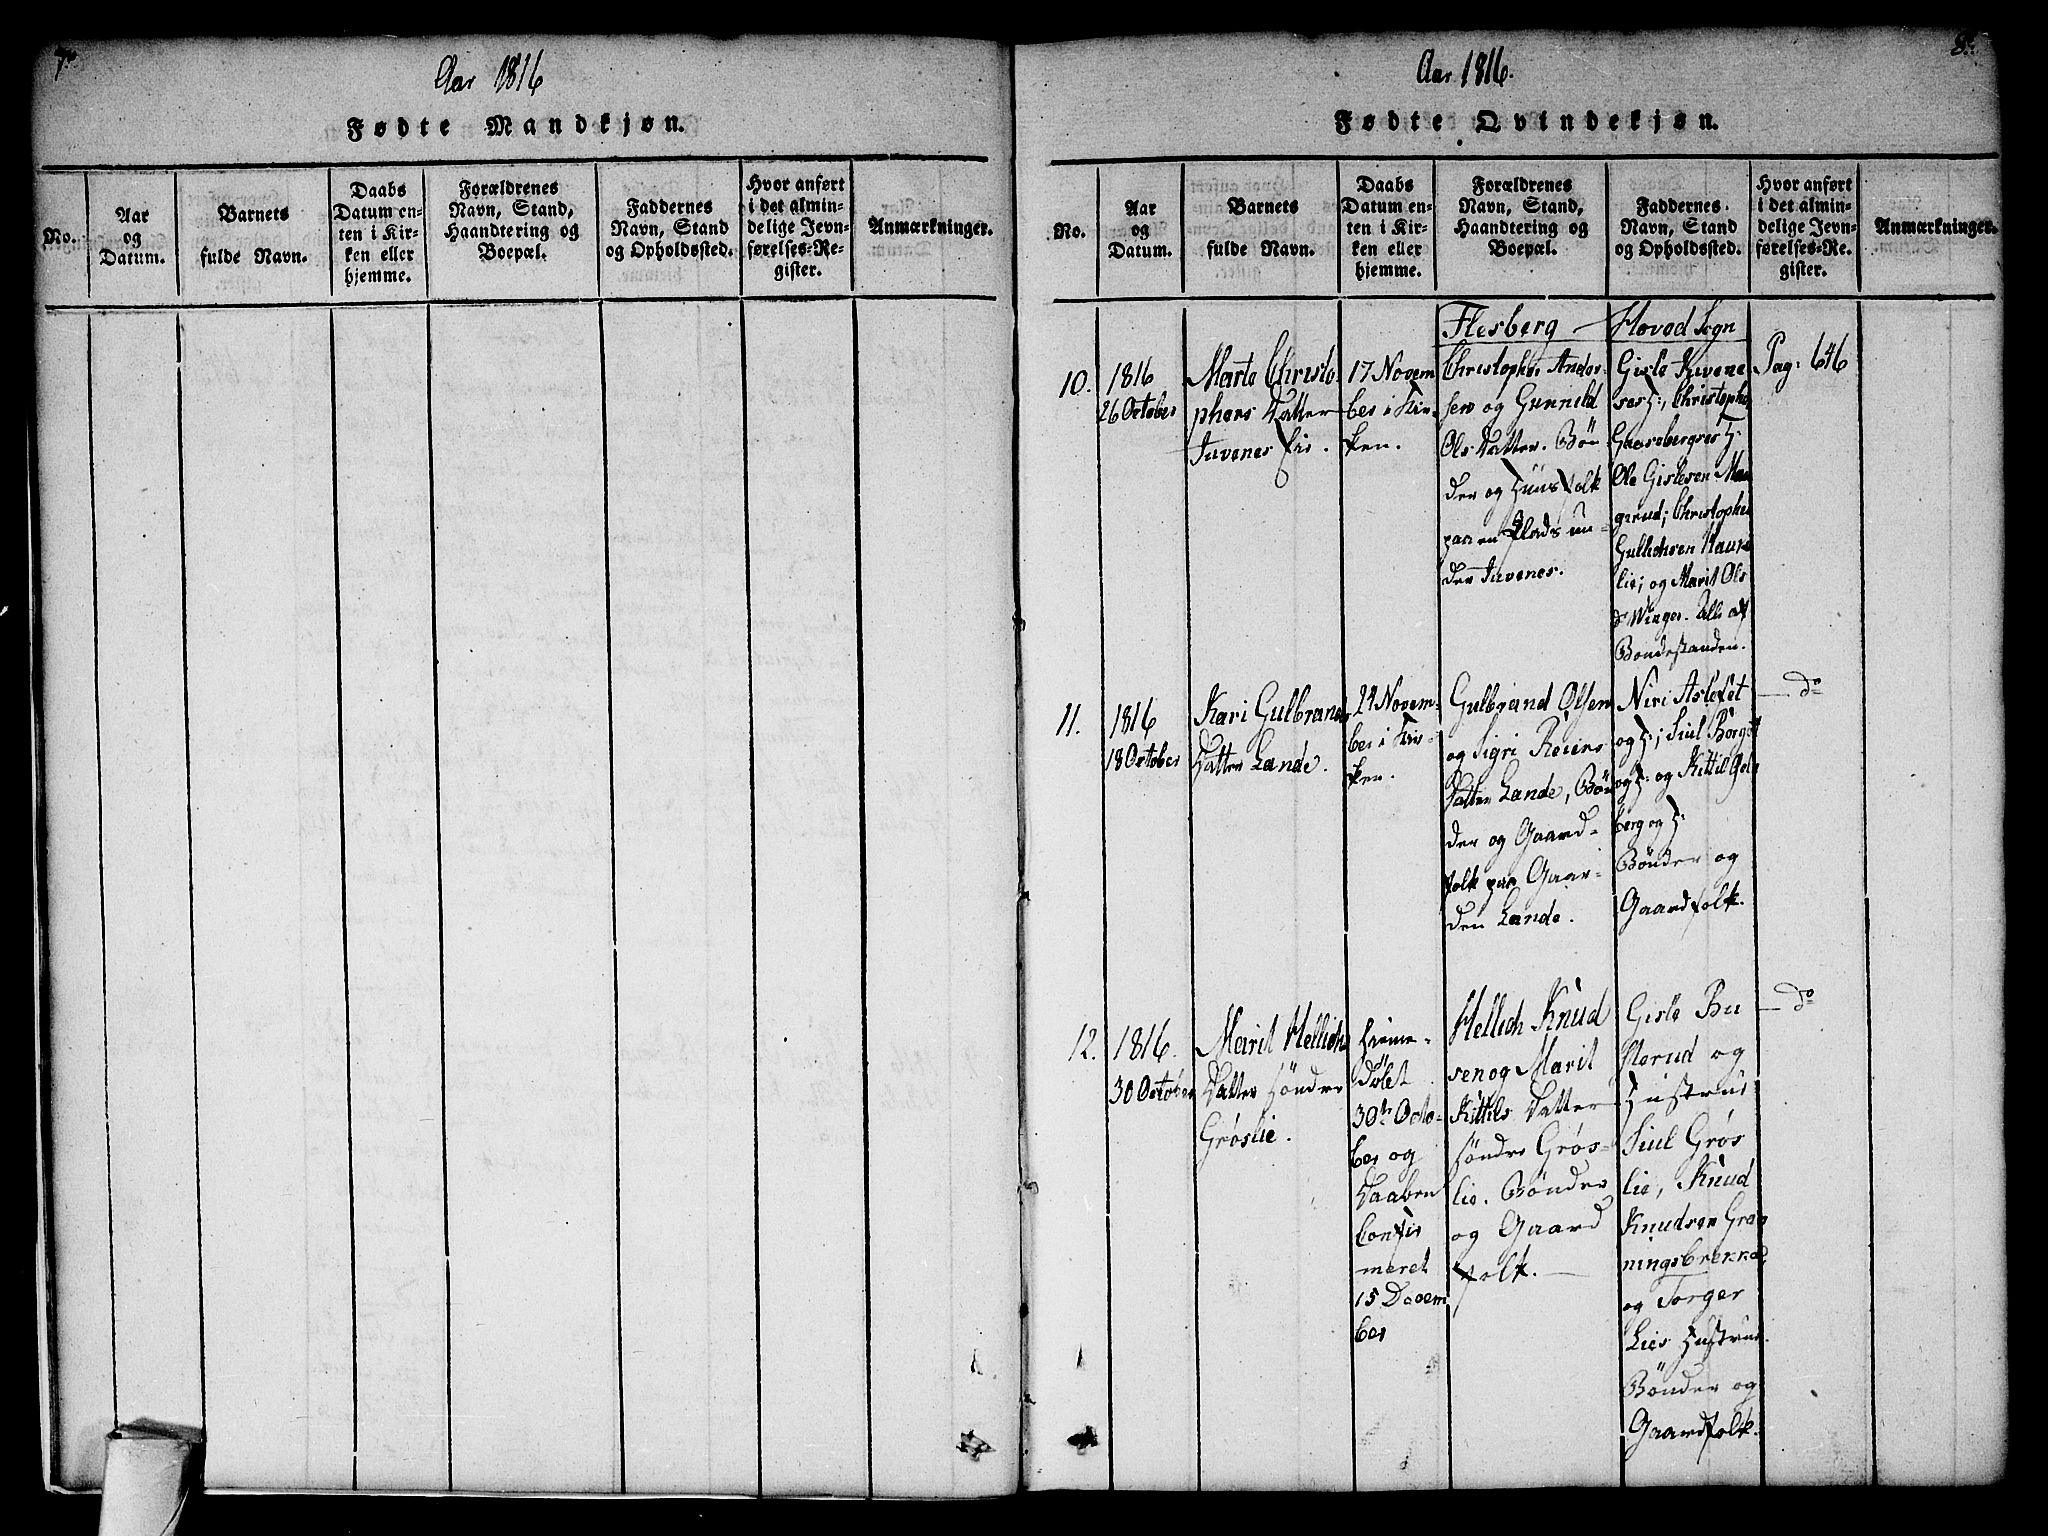 7.
Aar 1816
Fødte Mandkjøn.
No.
Aar
og
Datum.
Barnets
fulde Navn.
Daabs
Datum en-
ten i Kir-
ken eller
hjemme.
Forældrenes
Navn, Stand,
Haandtering og
Boepæl.
Faddernes
Navn, Stand
og Opholdssted.
Hvor anført
i det almin-
delige Jevn-
førelses-Re-
gister.
Anmærkninger.
8.
Aar 1816.
Fødte Qvindekjøn.
No.
Aar
og
Datum.
Barnets
fulde Navn.
Daabs
Datum en-
ten i Kir-
ken eller
hjemme.
Forældrenes
Navn, Stand,
Haandtering og
Boepæl.
Faddernes
Navn, Stand
og Opholdssted.
Hvor anført
i det almin-
delige Jevn-
førelses-Re-
gister.
Anmærkninger.
Flesberg Hoved Sogn
10.
1816
26 October
Marte Christo-
phers Datter
Juvenes
17 Novem
ber i Kir-
ken.
Christopher Ander-
sen og Gunnild
Ols Datter. Bøn-
der og Huusfolk
paa en Plads un-
der Juvenes.
Gisle Juvene
Christopher
Ole Gislesen
gerud; Christopher
Gullichsen
lie; og Marit Ols
d. Winger. Alle af
Bondestanden.
Pag: 646
11.
1816
18 October
Kari Gulbrands
Datter Lande.
24 Novem-
ber i Kir-
ken.
Gulbrand Olsen
og Sigri Reiers
Datter Lande, Bøn
der og Gaard-
folk paa Gaar-
den Lande.
Niri Aslefet
og H:; Juul
og H: og Kittil
berg og H:
Bønder og
Gaardfolk.
do
12.
1816.
30 October
Marit Hellichs
Datter Søndre
Grøslie.
Hjeme-
døbt
30te Octo-
ber og
Daaben
Confir
meret
15 Decem
ber
Hellich Knud
sen og Marit
Kittils Datter
Søndre Grøs-
lie. Bønder
og Gaard
folk.
Gisle Bu
sterud og
Hustrue
Juul Grøs
lie, Knud
Knudsen Grø
ningsbrekke,
og Torger
Lies Hustrue.
Bønder og
Gaardfolk.
do